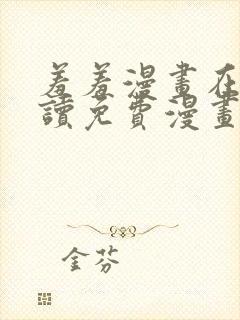 羞羞漫畫在
讀免費漫畫
金芬